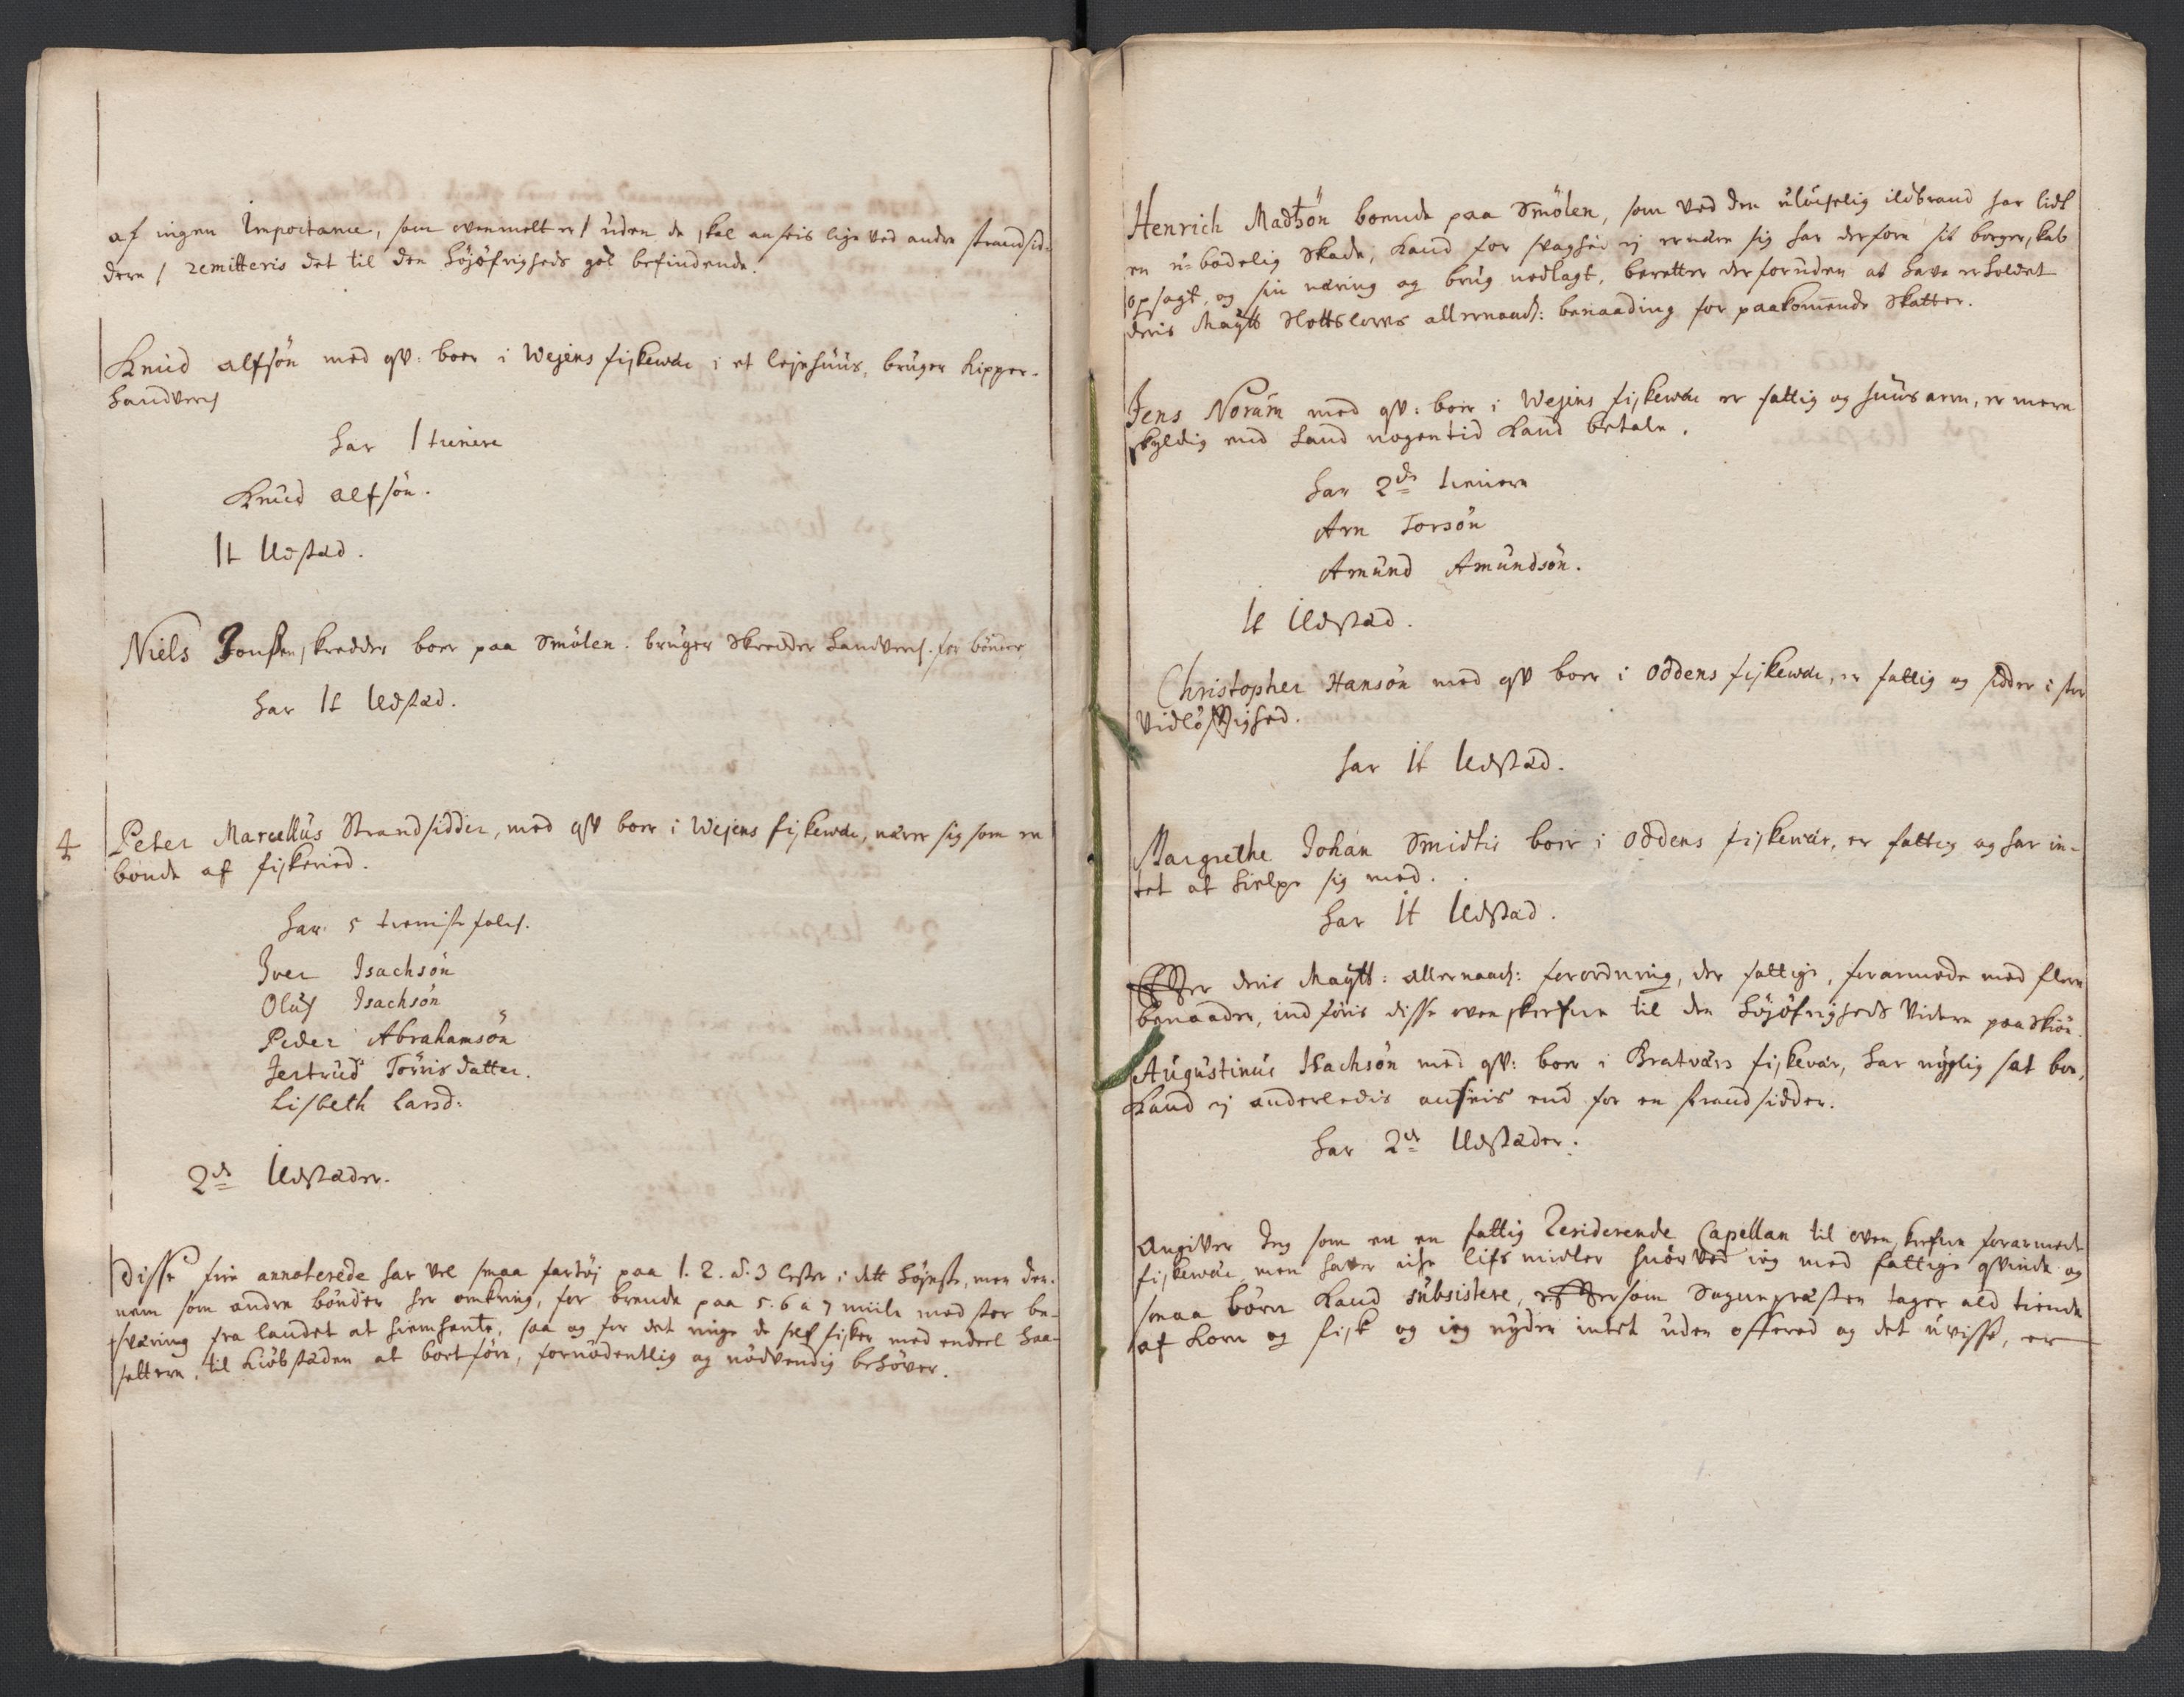 af ingen Importance, som ovenmelt er / uden de skal ansees lige ved andre strandsid-
dere / remitteris det til den Højøfrigheds got befindende.
Knud alfsøn med qv: boer i Wejens fiskevær i et lejehuus, bruger kipper-
handverch
har 1 tienere
Knud alfsøn.
It Ildstæd.
Niels Jonsen skredder boer paa Smølen. bruger Skredder handverch. for bønder
har It Ildstæd.
4
Peter Marcellus Strandsidder, med qv boer i Wejens fiskevær, nærer sig som en
bonde af fiskeried.
har 5 tieniste folch.
Iver Isachsøn
Oluf Isachsøn
Peder Abrahamsøn
Jertrud Tørris datter.
Lisbeth Larsd:
2de Ildstæder.
Disse fire annoterede har vel smaa fartøj paa 1. 2. à 3 lester i dett højeste, men den-
nem som andre bønder her omkring, for brende paa 5. 6 a 7 miile med stor be-
sværing fra landet at hiemhente, saa og for det ringe de self fisker med endeel haa-
settere, til kiøbstæden at bortføre, fornødentlig og nødvendig behøver.
Henrich Madsøn boende paa Smølen, som ved den uløchelig ildbrand har lidt
en u-bodelig Skade, kand for svaghed ej ernære sig har derfore sit borgerskab
opsagt, og sin næring og brug nedlagt, beretter der foruden at have erholdet
deris Maytt Slottslovens allernaad: benaading for paakommende Skatter.
Jens Noram med qv: boer i Wejens fiskevær er fattig og huusarm, er mere
skyldig end hand nogentid kand betale.
har 2de tienere
Arn Torsøn
Amund Amundsøn.
It Ildstæd.
Christopher Hansøn med qv boer i Oddens fiskevær, er fattig og sidder i stor
vidløftighed.
har It Ildstæd.
Margrethe Johan Smidtis boer i Oddens fiskevær, er fattig og har in-
tet at hielpe sig med.
har It Ildstæd.
Efter deris Maytt: allernaad: forordning, der fattige, forarmede med flere
benaader, indføris disse ovenskrefne til den Højøfrigheds videre paaskiøn.
Augustinus Isachsøn med qv: boer i Bratværs fiskevær, har nyelig sat boe,
kand ej anderledis ansees end for en strandsidder.
har 2de Ildstæder.
Angiver Jeg som er en fattig Residerende Capellan til ovenskrefne forarmede
fiskevær, men haver iche lifs midler hvorved jeg med fattige qvinde og
smaa børn kand subsistere, eftersom Sognepræsten tager ald tiende
af korn og fisk og jeg nyder intet uden offeret og det uvisse, er